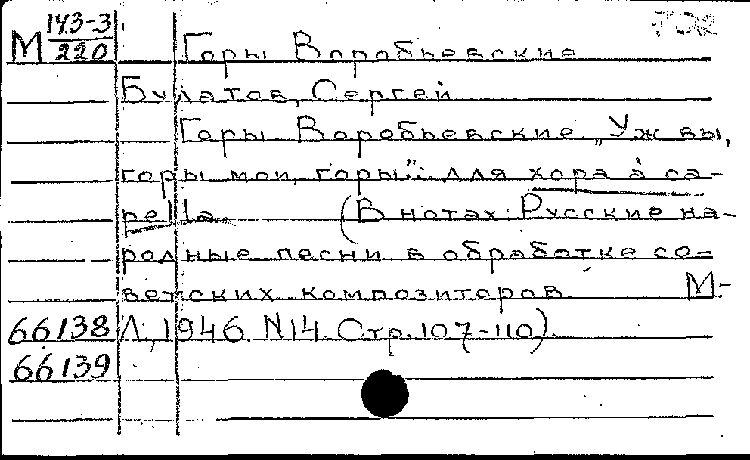 М 143-3/220 Горы Воробьевские
Булатов, Сергей
Горы Воробьевские "Уж вы,
горы мои, горы": для хора а ca-
pella (В нотах: Русские на-
родные песни в обработке со-
ветских композиторов. М.-
66138 Л., 1946. N14. Стр. 107-110).
66139